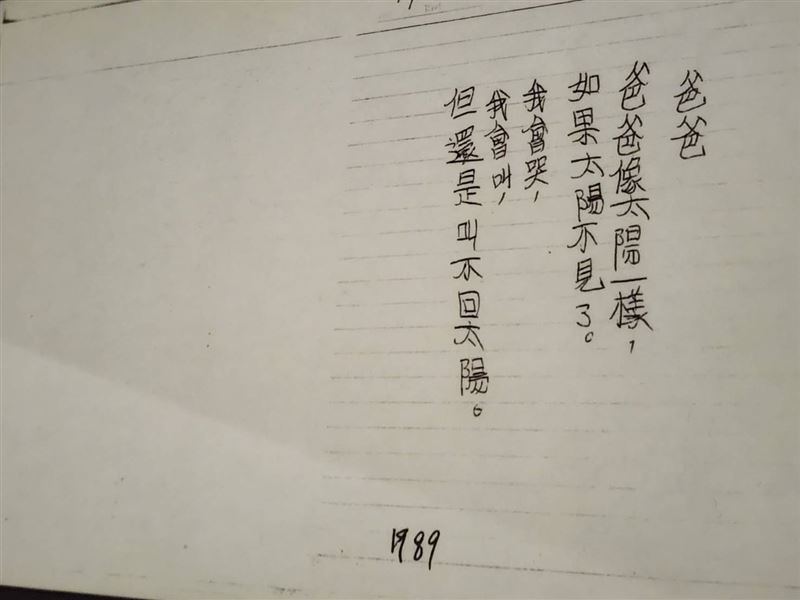 爸爸
爸爸像太陽一樣，
如果太陽不見了。
我會哭，
我會叫，
但還是叫不回太陽。
1989